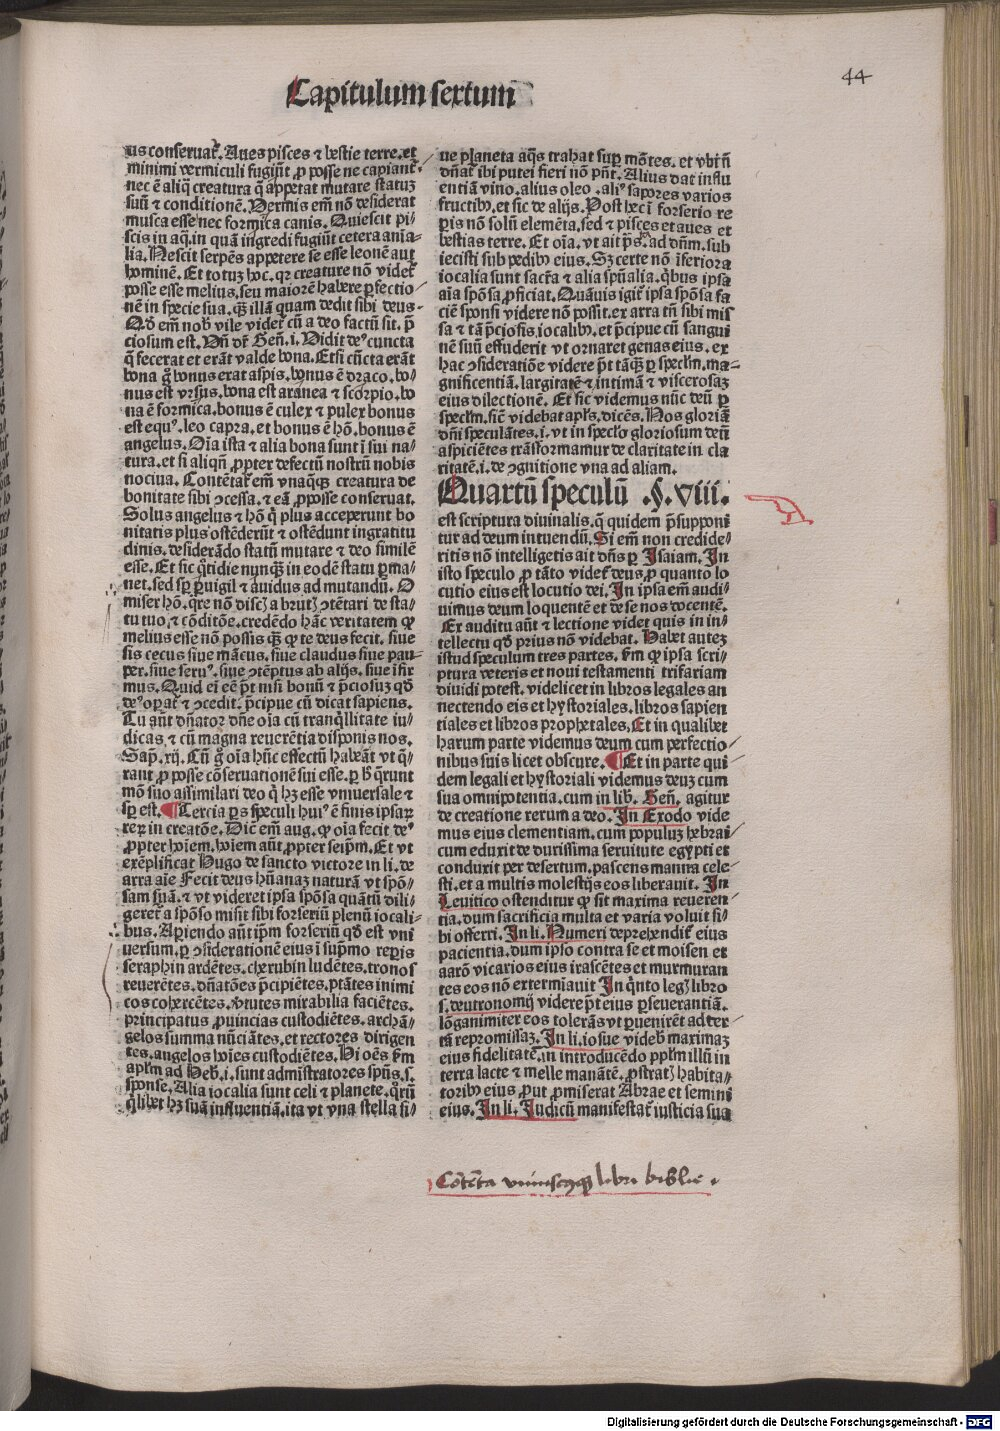 44
Capitulum sextum
us conseruat᷑. Aues pisces ⁊ bestie terre. et
minimi vermiculi fugiu͂t ꝓ posse ne capiant᷑.
nec ē aliq̄ creatura q̄ appetat mutare statuꝫ
suū ⁊ conditionē. Vermis em̄ nō desiderat
musca esse nec formica canis. Quiescit pi⸗
scis in aq̄. in quā ingredi fugiūt cetera anīa⸗
lia. Nescit serpēs appetere se esse leonē aut
hominē. Et totuꝫ hoc. qꝛ creature nō vidēt
posse esse melius. seu maiorē habere ꝑfectio⸗
nē in specie sua. qꝫ illā quam dedit sibi deus⸗
Qd̄ em̄ nob̄ vile videt᷑ cū a deo factū sit. p̄
ciosum est. Vn̄ dꝛ Geñ. i. Vidit deꝰ cuncta
q̄ fecerat et erāt valde bona. Etsi cūcta erāt
bona g̊ bonus erat aspis. bonus ē draco. bo⸗
nus est vrsus. bona est aranea ⁊ scorpio. bo
na ē formica. bonus ē culex ⁊ pulex bonus
est equꝰ. leo capra. et bonus ē hō. bonus ē
angelus. Oīa ista ⁊ alia bona sunt ī sui na⸗
tura. et si aliqñ ꝓpter defectū nostrū nobis
nociua. Contētat᷑ em̄ vnaq̄qꝫ creatura de
bonitate sibi ꝯcessa. ⁊ eā ꝓ posse conseruat.
Solus angelus ⁊ hō q̄ plus acceperunt bo
nitatis plus ostēderūt ⁊ ostēdunt ingratitu
dinis. desiderādo statū mutare ⁊ deo similē
esse. Et sic q̊tidie nunqꝫ in eodē statu ꝑma⸗
net. sed sꝑ ꝑuigil ⁊ auidus ad mutandū. O
miser hō. qre nō discꝫ a brutꝫ ꝯtētari de sta⸗
tu tuo ⁊ cōditōe. credēdo hāc veritatem ꝙ
melius esse nō possis qꝫ ꝙ te deus fecit. siue
sis cecus siue mācus. siue claudus siue pau⸗
per. siue seruꝰ. siue ꝯtēptus ab alijs. siue īfir
mus. Quid eī eē p̄t nisi bonū ⁊ p̄ciosuꝫ qd̄
deꝰ oꝑat᷑ ⁊ ꝯcedit. p̄cipue cū dicat sapiens.
Tu aūt dn̄ator dn̄e oīa cū tranq̄llitate iu⸗
dicas ⁊ cū magna reuerētia disponis nos.
Sap̄. xij. Cū g̊ oīa hūc effectū habeāt vt q̄⸗
rant ꝓ posse cōseruationē sui esse. ꝑ hͦ q̄runt
mō suo assimilari deo q̄ hꝫ esse vniuersale ⁊
sꝑ est. ¶ Tercia ꝑs speculi huiꝰ ē finis ipsaꝝ
rerꝝ in creatōe. Dic̄ em̄ aug. ꝙ oīa fecit deꝰ
ꝓpter hoīem. hoīem aūt ꝓpter seip̄m. Et vt
exēplificat Hugo de sancto victore in li. de
arra aīe Fecit deus hūanaꝫ naturā vt spō⸗
sam suā. ⁊ vt videret ipsa spōsa quātū dili⸗
geret᷑ a spōso misit sibi forseriū plenū iocali⸗
bus. Aꝑiendo aūt ip̄m forseriū qd̄ est vni
uersum. ꝑ ꝯsiderationē eius ī sup̄mo reperis
seraphin ardētes. cherubin ludētes. tronos
reuerētes. dn̄atōes p̄cipiētes. ptātes inimi
cos cohercētes. v̄tutes mirabilia faciētes.
principatus ꝓuincias custodiētes. archā⸗
gelos summa nūciātes. et rectores dirigen
tes. angelos hoīes custodiētes. Hi oēs ẜm
apl̄m ad Heb̄. i. sunt admīstratores spūs. s.
sponse. Alia iocalia sunt celi ⁊ planete. q̊rū
q̄libet hꝫ suā influentiā. ita vt vna stella si⸗
ue planeta aq̄s trahat suꝑ mōtes. et vbi n̄
dn̄at᷑ ibi putei fieri nō pn̄t. Alius dat influ
entiā vino. alius oleo. aliꝰ sapores varios
fructibꝰ. et sic de alijs. Post hec ī forserio re
ꝑis nō solū elemēta. sed ⁊ pisces et aues et
bestias terre. Et oīa. vt ait p̄s. ad dn̄m. sub
iecisti sub pedibꝰ eius. Sꝫ certe nō īferiora
iocalia sunt sacr̄a ⁊ alia spūalia. q̄bus ipsa
aīa spōsa ꝓficiat. Quāuis igit᷑ ipsa spōsa fa
ciē sponsi videre nō possit. ex arra tn̄ sibi mis
sa ⁊ tā p̄ciosis iocalibꝰ. et p̄cipue cū sangui
nē suū effuderit vt ornaret genas eius. ex
hac ꝯsideratiōe videre p̄t tāqꝫ ꝑ specl̄m. ma⸗
gnificentiā. largitatē ⁊ intimā ⁊ viscerosaꝫ
eius dilectionē. Et sic videmus nūc deū ꝑ
specl̄m. sic̄ videbat apl̄s. dicēs. Nos gloriā
dn̄i speculātes. i. vt in specl̄o gloriosum deū
aspiciētes trāsformamur de claritate in cla
ritatē. i. de ꝯgnitione vna ad aliam.
Quartū speculū .§. viii.
est scriptura diuinalis. q̄ quidem p̄supponi
tur ad deum intuendū. Si em̄ non credide⸗
ritis nō intelligetis ait dn̄s ꝑ Isaiam. In
isto speculo ꝓ tāto videt᷑ deus. ꝓ quanto lo
cutio eius est locutio dei. In ipsa em̄ audi⸗
uimus deum loquentē et de se nos docentē.
Ex auditu aūt ⁊ lectione videt quis in in⸗
tellectu qd̄ prius non videbat. Habet auteꝫ
istud speculum tres partes. ẜm ꝙ ipsa scri⸗
ptura veteris et noui testamenti trifariam
diuidi potest. videlicet in libros legales an
nectendo eis et hystoriales. libros sapien
tiales et libros prophetales. Et in qualibet
harum parte videmus deum cum perfectio⸗
nibus suis licet obscure. ¶ Et in parte qui⸗
dem legali et hystoriali videmus deuꝫ cum
sua omnipotentia. cum in lib. Geñ. agitur
de creatione rerum a deo. In Exodo vide
mus eius clementiam. cum populuꝫ hebrai⸗
cum eduxit de durissima seruitute egypti et
conduxit per desertum. pascens manna cele⸗
sti. et a multis molestijs eos liberauit. In
Leuitico ostenditur ꝙ sit maxima reueren⸗
tia. dum sacrificia multa et varia voluit si⸗
bi offerri. In li. Numeri deprehendit᷑ eius
pacientia. dum ipso contra se et moisen et
aarō vicarios eius irascētes et murmuran
tes eos nō extermiauit In q̊nto legꝫ libro
s. deutronomij videre p̄t eius ꝑseuerantiā.
lōganimiter eos tolerās vt ꝑuenirēt ad ter⸗
rā repromissaꝫ. In li. iosue videb̄ maximaꝫ
eius fidelitatē. in introducēdo pplm̄ illū in
terra lacte ⁊ melle manātē. ꝓstratꝫ habita⸗
toribꝰ eius ꝓut ꝓmiserat Abrae et semini
eius. In li. Iudicū manifestat᷑ iusticia sua
Cōtēta vniuscuiusqꝫ libri biblie.
Digitalisierung gefördert durch die Deutsche Forschungsgemeinschaft - DFG